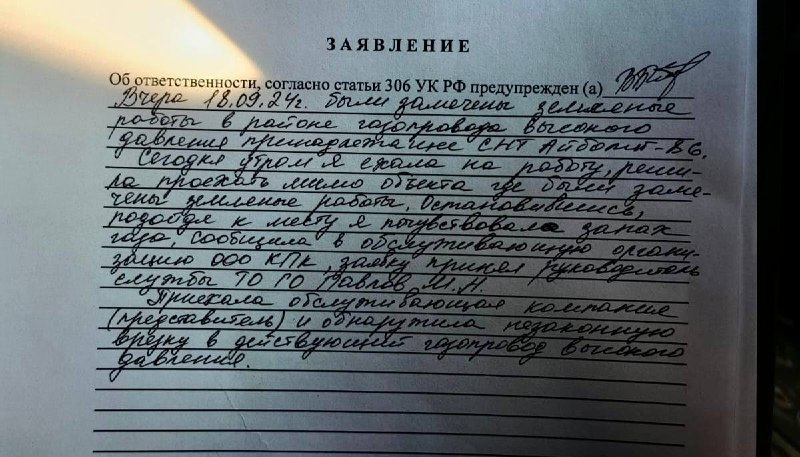 ЗАЯВЛЕНИЕ
Об ответственности, согласно статьи 306 УК РФ предупрежден (а)
Вчера 18.09.24г. были замечены земляные
работы в районе газопровода высокого
давления принадлежащие СНТ Айболит-В6.
Сегодня утром я ехала на работу, реши-
ла проехать мимо объекта где были заме-
чены земляные работы. Остановившись,
подойдя к месту я почувствовала запах
газа, сообщила в обслуживающую органи-
зацию ООО КПК, заявку принял руководитель
службы ТО ГО Павлов М.Н
Приехала обслуживающая компания
(представитель) и обнаружила незаконную
врезку в действующий газопровод высокого
давления.